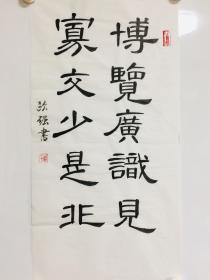 博覽廣識見
寡交少是非
啟強書